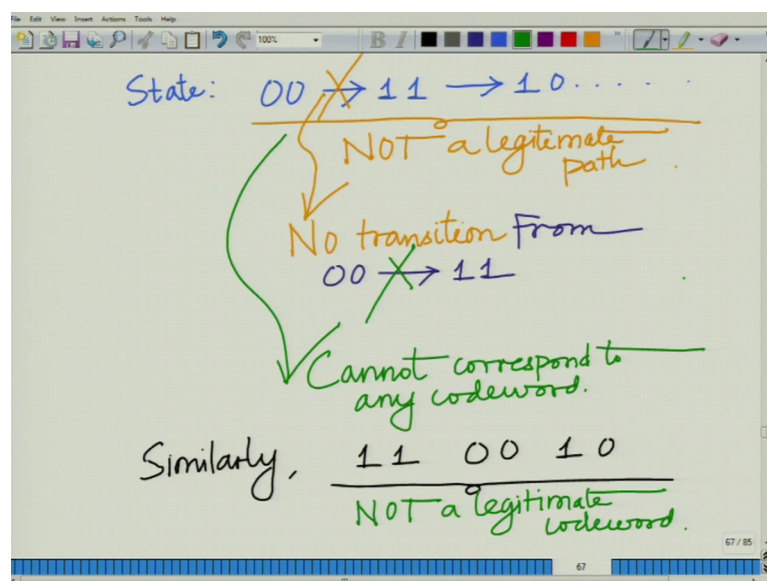 File Edit View Insert Actions Tools Help
100%
B I
State: 00 → 11 → 10.....
NOT a legitemate
path.
No transition From
00 → 11
Cannot correspond to
any codeword.
Similarly, 11 00 10
NOT a legitimate
codeword.
67 / 85
67